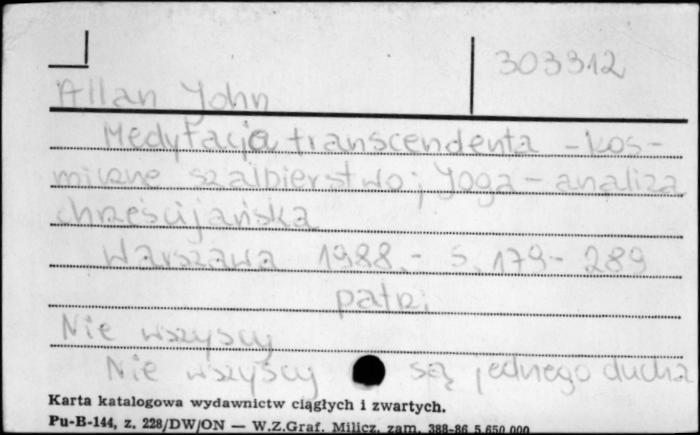 303312
Allan John
Medytacja transcendenta - kos-
miczne szalbierstwo; Yoga - analiza
chrześcijańska
Warszawa 1988.- s. 179- 289
patrz:
Nie wszyscy
Nie wszyscy są jednego ducha
Karta katalogowa wydawnictw ciągłych i zwartych.
Pu-B-144, z. 228/DW/ON — W.Z.Graf. Milicz, zam. 388-86 5.650.000